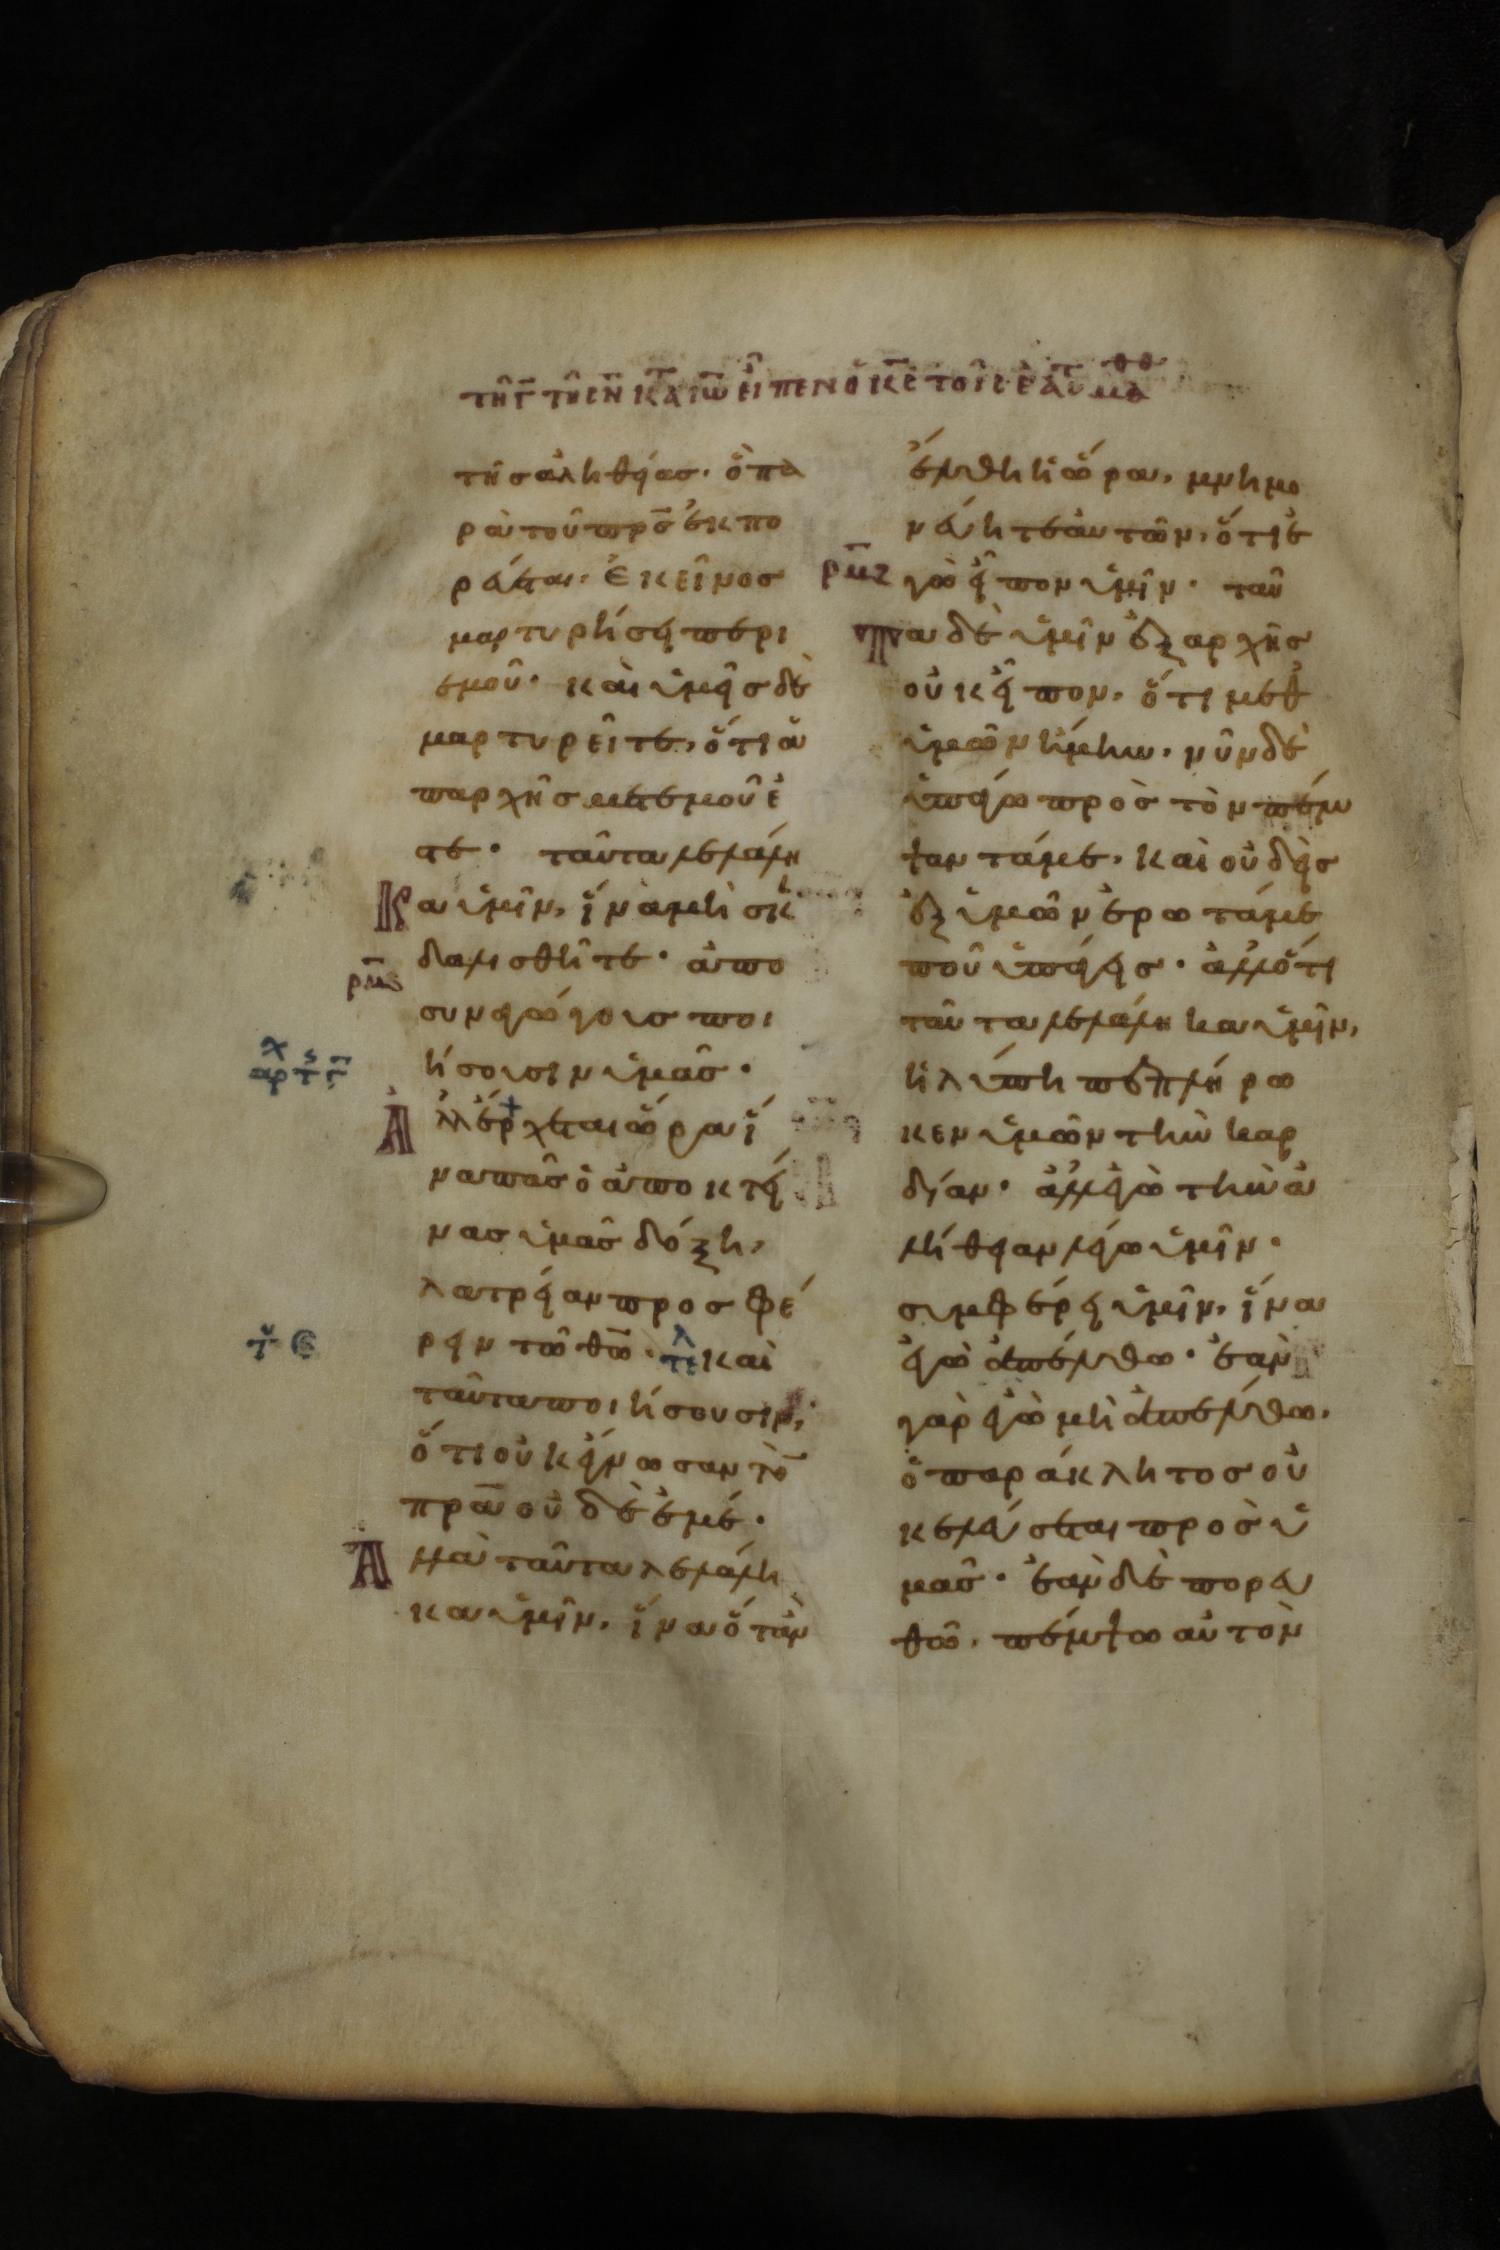 τῆς ἀληθείας· ὃ πα
ρὰ τοῦ πρ̅ς̅ ἐκπο
ρεύεται· ἐκεῖνος
μαρτυρήσει περὶ
ἐμοῦ· καὶ ὑμεῖς δὲ
μαρτυρεῖτε, ὅτι ἀ
π' ἀρχῆς μετ' ἐμοῦ ἐ
στε· ταῦτα λελάλη
Κα ὑμῖν, ἵνα μὴ σκαν
δαλισθῆτε· ἀπο
ρμϛ
συναγώγους ποι
ήσουσιν ὑμᾶς·
Ἀλλ' ἔρχεται ὥρα ἵ
να πᾶς ὁ ἀποκτεί
νας ὑμᾶς δόξῃ,
λατρείαν προσφέ
ρειν τῶ θ̅ω̅· καὶ
ταῦτα ποιήσουσιν,
ὅτι οὐκ ἔγνωσαν τὸν
πρ̅α̅ οὐδὲ ἐμέ·
Ἀλλὰ ταῦτα λελάλη
κα ὑμῖν, ἵνα ὅταν
ἔλθη ἡ ὥρα, μνημο
νεύητε αὐτῶν, ὅτι ἐ
ρμζ
γὼ εἶπον ὑμῖν· ταῦ
Τα δὲ ὑμῖν ἐξ ἀρχῆς
οὐκ εἶπον, ὅτι μεθ'
ὑμῶν ἤμην· νῦν δὲ
ὑπάγω πρὸς τὸν πέμ
ψαντά με, καὶ οὐδεὶς
ἐξ ὑμῶν ἐρωτᾶ με
ποῦ ὑπάγεις· ἀλλ' ὅτι
ταῦτα λελάληκα ὑμῖν,
ἡ λύπη πεπλήρω
κεν ὑμῶν τὴν καρ
δίαν· ἀλλ' ἐγὼ τὴν ἀ
λήθειαν λέγω ὑμῖν·
συμφέρει ὑμῖν, ἵνα
ἐγὼ ἀπέλθω· ἐὰν
γὰρ ἐγὼ μὴ ἀπέλθω,
ὁ παράκλητος οὐ
κ ἐλεύσεται πρὸς ὑ
μᾶς· ἐὰν δὲ πορευ
θῶ, πέμψω αὐτὸν